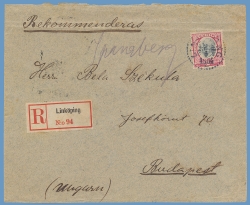 Rekommenderas
Herr Bela Szekula
R
Linköping
No 94
Josefkörut 70
Budapest
(Ungarn)